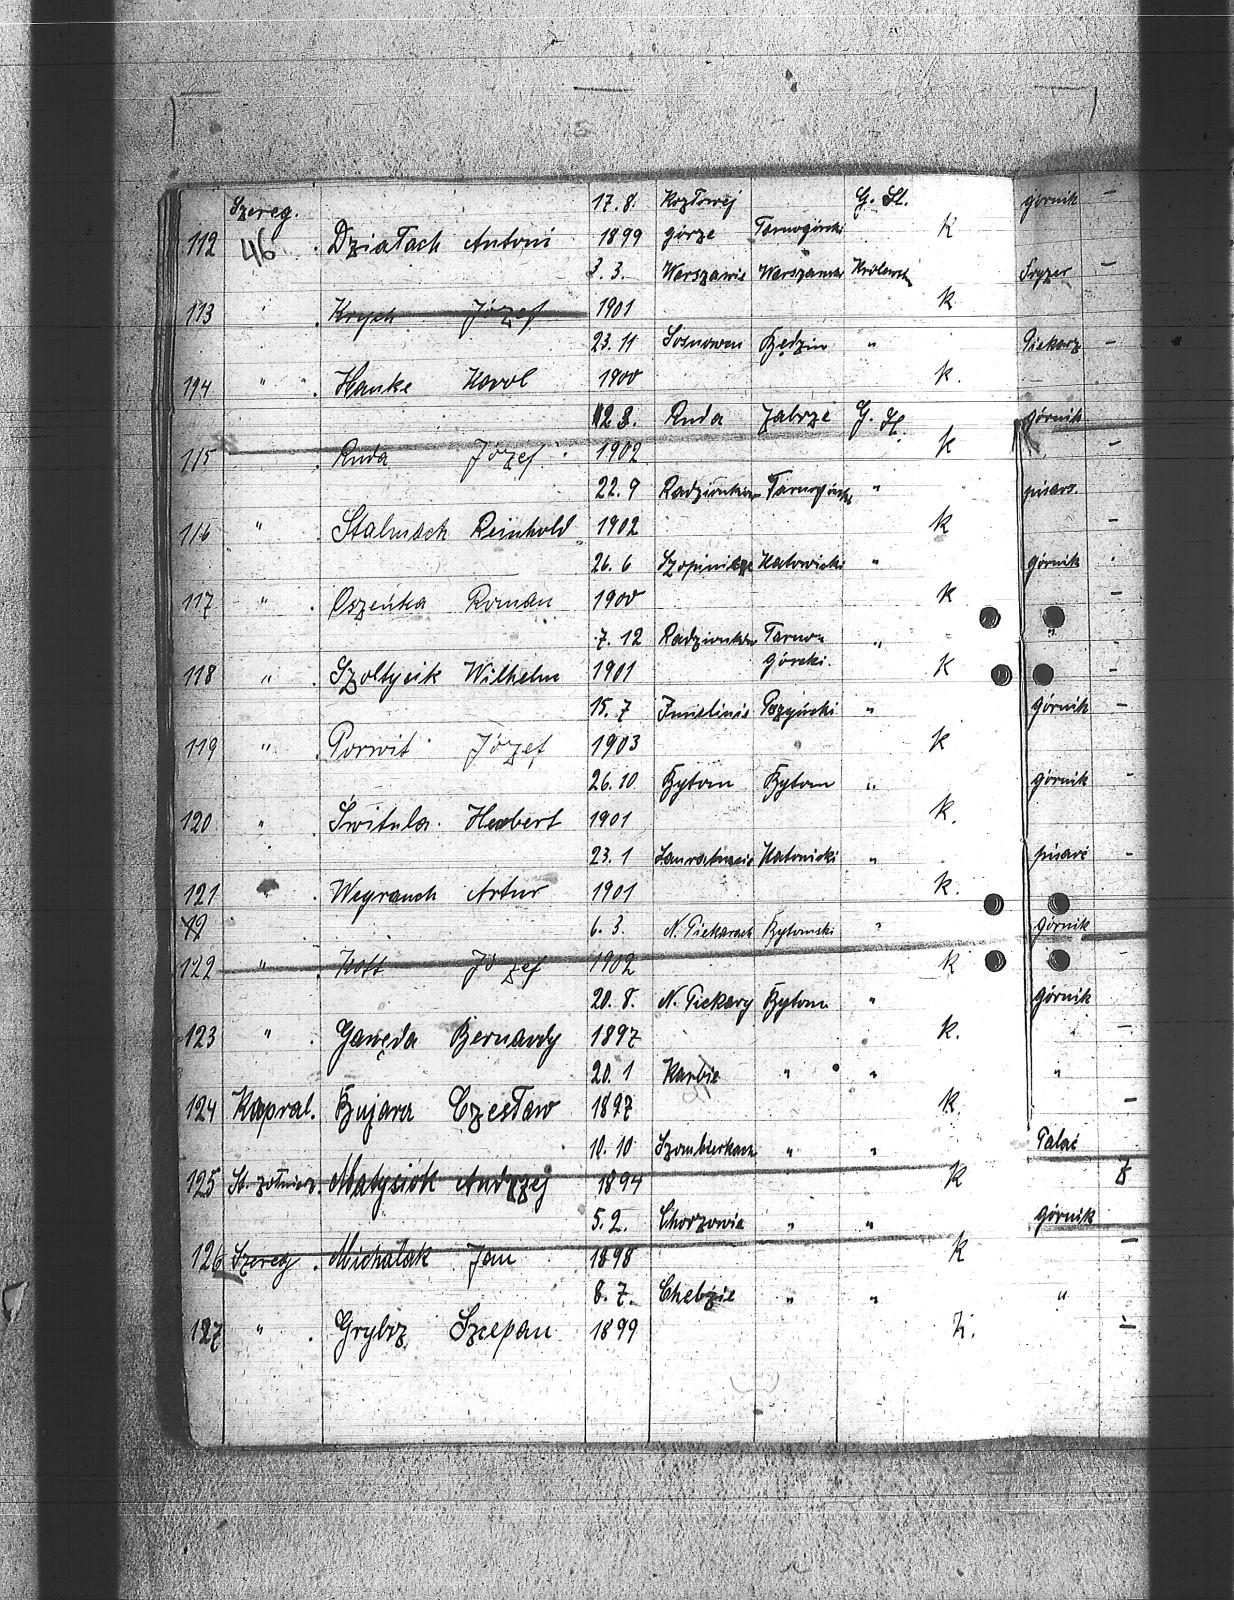 Szereg. 17.8. Kozłowej G. Śl. górnik -
112 46 . Działach Antoni 1899 górze Tarnogórski k
3.3. Warszawie Warszawa fryzer -
113 " . Krych Józef 1901 k
23.11 Sosnowcu Będzin " Piekarz -
114 " . Hanke Karol 1900 k.
Ruda Zabrze G. górnik
115 . Ruda Józef 1902 k -
22.9 Tarnogórski " pisarz
116 " . Stalmach Reinhold 1902 k -
26.6 Katowicki " górnik
117 " . Roman 1900 k -
7.12 Radzionków Tarno= " "
118 " . Wilhelm 1901 górski. k -
15.7 " górnik -
119 " . Porwit Józef 1903 k
26.10 Bytom Bytom " górnik -
120 " . Świtula Herbert 1901 k.
23.1 Katowicki " -
121 . Weyrauch Artur 1901 k.
6.3. N. Piekarach Bytomski " górnik
122 " . Kott Józef 1902 k
20.8. N. Piekary Bytom " górnik
123 " . Gawęda Bernardy 1897 k. -
20.1 Karbie " " "
124 Kapral. Bujara Czesław 1897 k. -
10.10 Szombierkach " "
125 St. żołnierz. Matysiok Andrzej 1894 k
5.2. Chorzowie " " górnik
126 Szereg . Michalak Jan 1898 k -
8.7. Chebzie " " "
127 " . Grybrz Szczepan 1899 -